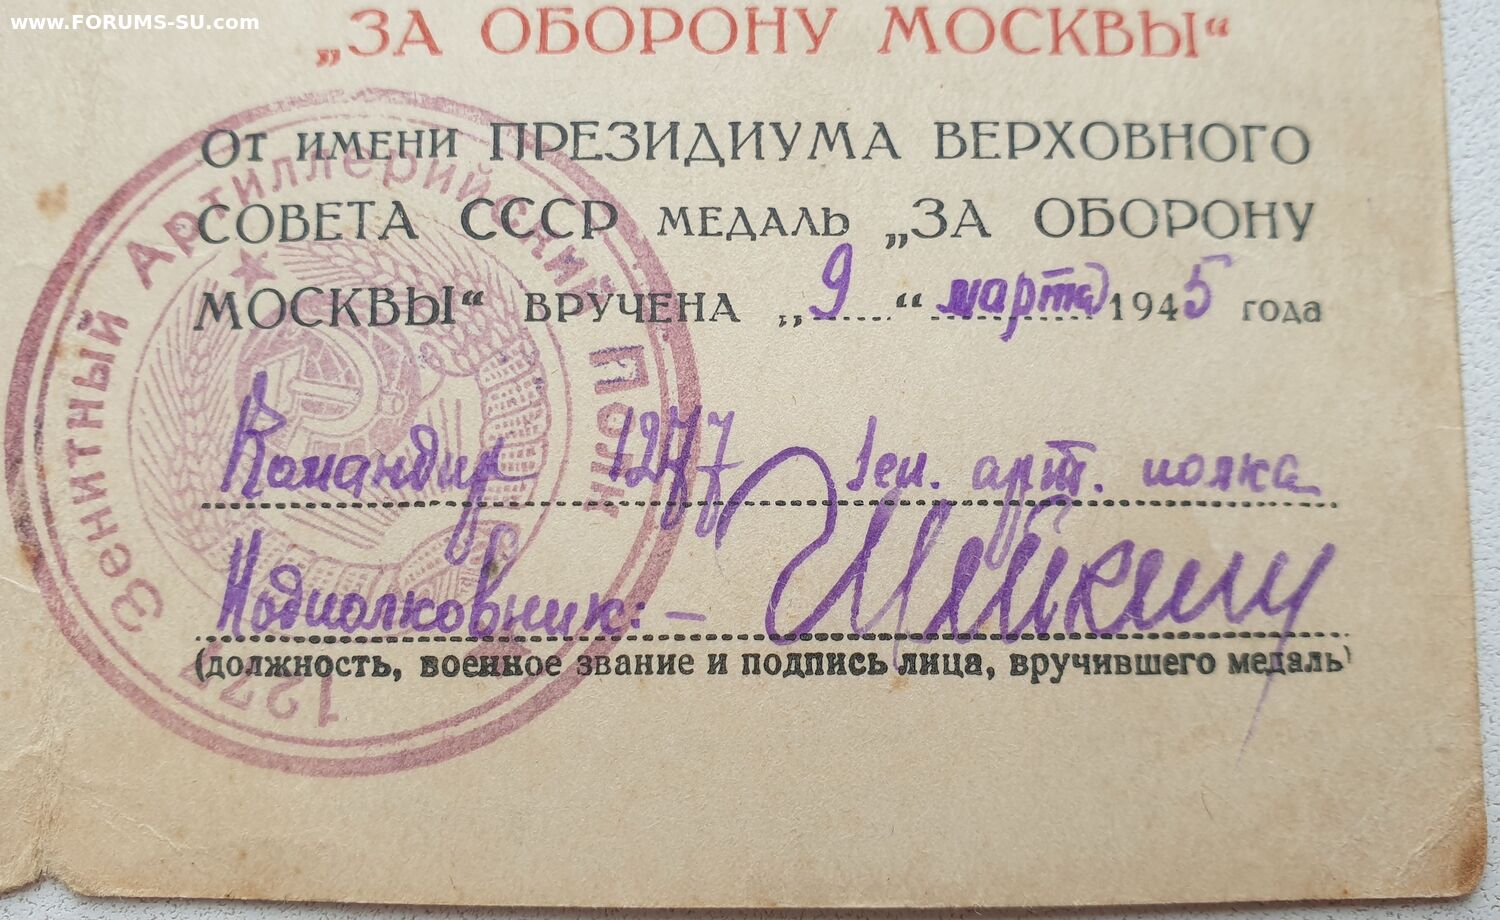 www.FORUMS-SU.com
„ЗА ОБОРОНУ МОСКВЫ“
От имени ПРЕЗИДИУМА ВЕРХОВНОГО
СОВЕТА СССР медаль „ЗА ОБОРОНУ
МОСКВЫ“ вручена „9“ марта 1945 года
Командир 1277 Зен. арт. полка
Подполковник: -
(должность, военное звание и подпись лица, вручившего медаль)
1277 Зенитный Артиллерийский Полк